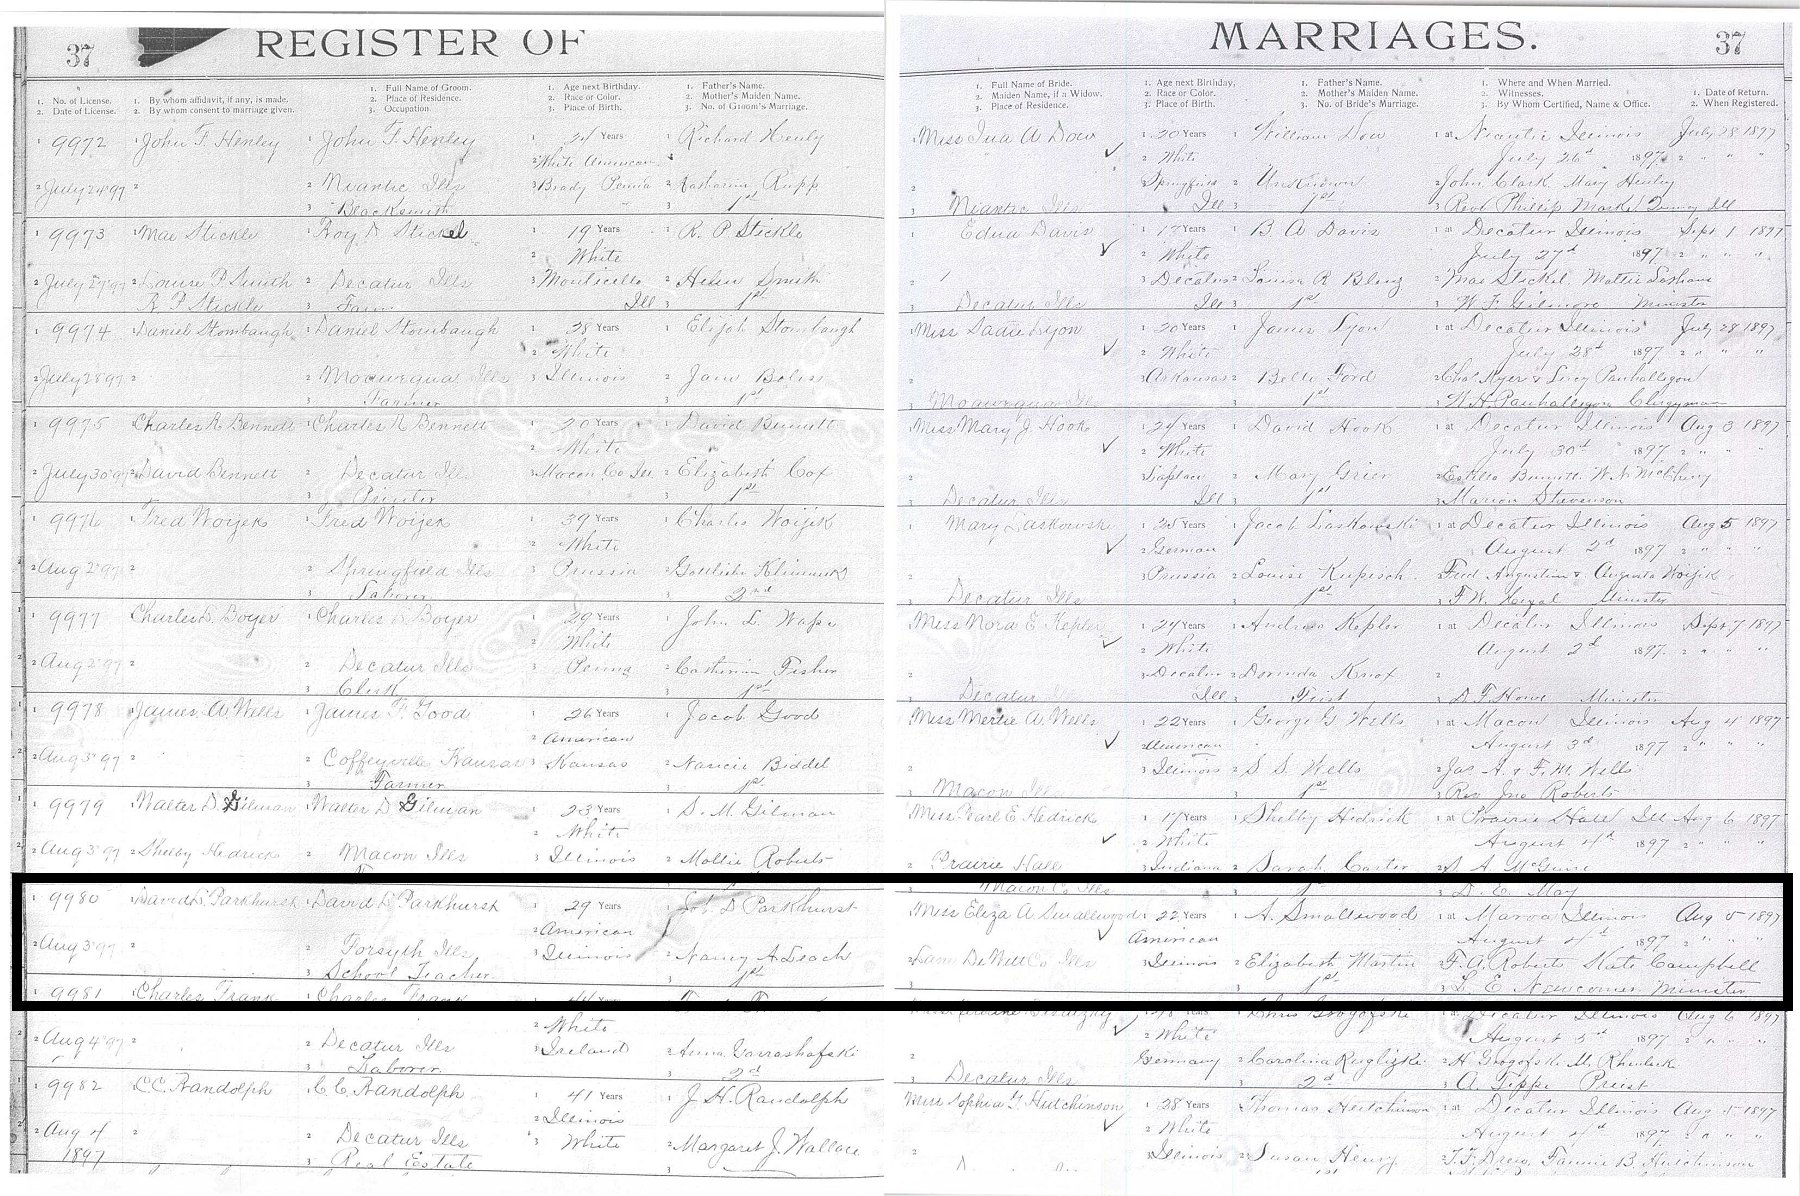 37 REGISTER OF
1. No. of License. 1. By whom affidavit, if any, is made. 1. Full Name of Groom. 1. Age next Birthday. 1. Father's Name.
2. Date of License. 2. By whom consent to marriage given. 2. Place of Residence. 2. Race or Color. 2. Mother's Maiden Name.
3. Occupation. 3. Place of Birth. 3. No. of Groom's Marriage.
1 9972 1 John F. Henley 1 John F. Henley 1 24 Years 1 Richard Henly
2 White American
2 July 24 '97 2 2 Niantic Ills 3 Brady Penna 2 Katharine Rupp
3 Blacksmith 3 1st
1 9973 1 Mae Stickle Roy D. Stickel 1 19 Years 1 R. P Stickle
2 White
2 July 27 '97 2 Louise P. Smith 2 Decatur Ills 3 Monticello 2 Helen Smith
R P Stickle 3 Ill 3 1st
1 9974 Daniel Stombaugh 1 Daniel Stombaugh 1 28 Years 1 Elijah Stombaugh
2 White
2 July 28 97 2 2 Moawequa Ills 3 Illinois 2 Jane
3 Farmer 3 1st
1 9975 Charles R Bennett 1 Charles R Bennett 1 20 Years 1 David Bennett
2 White
2 July 30 '97 2 David Bennett 2 Decatur Ills Macon Co Ill 2 Elizabeth Cox
3 Printer 3 1st
1 9976 1 Fred Woijek 1 Fred Woijek 1 39 Years 1 Charles Woijek
2 White
2 Aug 2 '97 2 2 Springfield Ills 3 Prussia 2 Gottlieba
3 Laborer 3 2nd
1 9977 Charles D. Boyer 1 Charles D. Boyer 1 29 Years 1 John L.
2 White
2 Aug 2 '97 2 2 Decatur Ills 3 Penna 2 Catherine Fisher
3 Clerk 3 1st
1 9978 1 James A Wells 1 James F. Good 1 26 Years 1 Jacob Good
2 American
2 Aug 3 '97 2 2 Coffeyville Kansas 3 Kansas 2 Nancie Biddel
3 Farmer 3 1st
1 9979 1 Walter D Gilman 1 Walter D Gilman 1 23 Years 1 S. M. Gilman
2 White
2 Aug 3 '97 2 Shelby Hedrick 2 Macon Ills 3 Illinois 2 Mollie Roberts
1 9980 1 David D. Parkhurst 1 David D. Parkhurst 1 29 Years 1 Job D Parkhurst
2 American
2 Aug 3 '97 2 2 Forsyth Ills 3 Illinois 2 Nancy A Leach
3 School Teacher 3 1st
1 9981 1 Charles Frank 1 Charles Frank
2 White
2 Aug 4 '97 2 2 Decatur Ills 3 Ireland 2 Anna
3 Laborer 3 2d
1 9982 1 C.C. Randolph 1 C.C. Randolph 1 41 Years 1 J. H. Randolph
2 Illinois
2 Aug 4 2 2 Decatur Ills 3 White 2 Margaret J. Wallace
1897 3 Real Estate 3
MARRIAGES. 37
1. Full Name of Bride. 1. Age next Birthday, 1. Father's Name. 1. Where and When Married.
2. Maiden Name, if a Widow. 2. Race or Color. 2. Mother's Maiden Name. 2. Witnesses. 1. Date of Return.
3. Place of Residence. 3. Place of Birth. 3. No. of Bride's Marriage. 3. By Whom Certified, Name & Office. 2. When Registered.
1 Miss Ina A Dow 1 20 Years 1 William Dow 1 at Niantic Illinois July 28 1897
2 White July 26th 1897 2 " " "
2 Springfield 2 Unknown 2 John Clark. Mary Henley
3 Niantic Ills Ill 3 1st 3 Revd Phillip Quincy Ill
1 Edna Davis 1 17 Years 1 B. A Davis 1 at Decatur Illinois Sept 1 1897
2 White July 27th 1897 2 " " "
2 3 Decatur 2 Louisa R 2 Mae Stickel. Mattie
3 Decatur Ills Ill 3 1st 3 W. F. Gilmore Minister
Miss Sadie Lyon 1 20 Years 1 James Lyon 1 at Decatur Illinois July 28 1897
2 White July 28th 1897 2 " " "
2 3 Arkansas 2 Belle Ford 2 Chas Ayer & Lucy Panhallegon
3 Moawequa Ills 3 1st 3 W. H. Panhallegon Clergyman
Miss Mary J. Hook 1 24 Years 1 David Hook 1 at Decatur Illinois Aug 3 1897
2 White July 30th 1897 2 " " "
2 3 2 Mary Grier 2 Estella Bennett
3 Decatur Ills Ill 3 1st 3 Marion Stevenson
1 Mary Laskowski 1 25 Years 1 Jacob Laskowski 1 at Decatur Illinois Aug 5 1897
2 German August 2d 1897 2 " " "
2 3 Prussia 2 Louise Kupisch 2 Fred Augustine & Augusta Woijik
3 Decatur Ills 3 1st 3 F. W. Minister
Miss Nora E. Kepler 1 24 Years 1 Andrew Kepler 1 at Decatur Illinois Sept 7 1897
2 White August 2d 1897 2 " " "
2 3 Decatur 2 Dorinda Knox 2
3 Decatur Ill 3 First 3 D. F. Howe Minister
Miss Mertie A. Wells 1 22 Years 1 George G Wells 1 at Macon Illinois Aug 4 1897
2 American August 3d 1897 2 " " "
2 3 Illinois 2 S S Wells 2 Jas A & F. M. Wells
3 Macon Ills 3 1st 3 Rev Jno Roberts
Miss Pearl E. Hedrick 1 17 Years 1 Shelby Hedrick 1 at Prairie Hall Ill Aug 6 1897
2 White August 4th 1897 2 " " "
2 Prairie Hall 3 Indiana 2 Sarah Carter 2 S A McGuire
3 Macon Co Ills 3 1st 3 D. E. May
Miss Eliza A Smallwood 1 22 Years 1 A. Smallwood 1 at Maroa Illinois Aug 5 1897
American August 4th 1897 2 " " "
2 Lane DeWitt Co Ills 3 Illinois 2 Elizabeth Martin 2 F. A. Roberts Kate Campbell
3 1st 3 L. E. Newcomer Minister
1 at Decatur Illinois Aug 6 1897
2 White August 5th 1897 2 " " "
2 Germany 2 Carolina 2 H.
3 Decatur Ills 3 2d 3 A. Tippe Priest
Miss Sophia G. Hutchinson 1 28 Years 1 Thomas Hutchinson 1 at Decatur Illinois Aug 5 1897
2 White August 4th 1897 2 " " "
2 3 Illinois 2 Susan Henry 2 T. F. Drew, Fannie B. Hutchinson